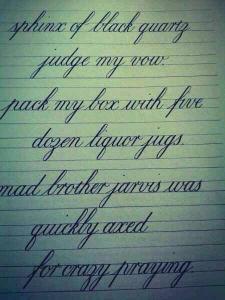 sphinx of black quartz
judge my vow.
pack my box with five
dozen liquor jugs.
mad brother jarvis was
quickly axed
for crazy praying.